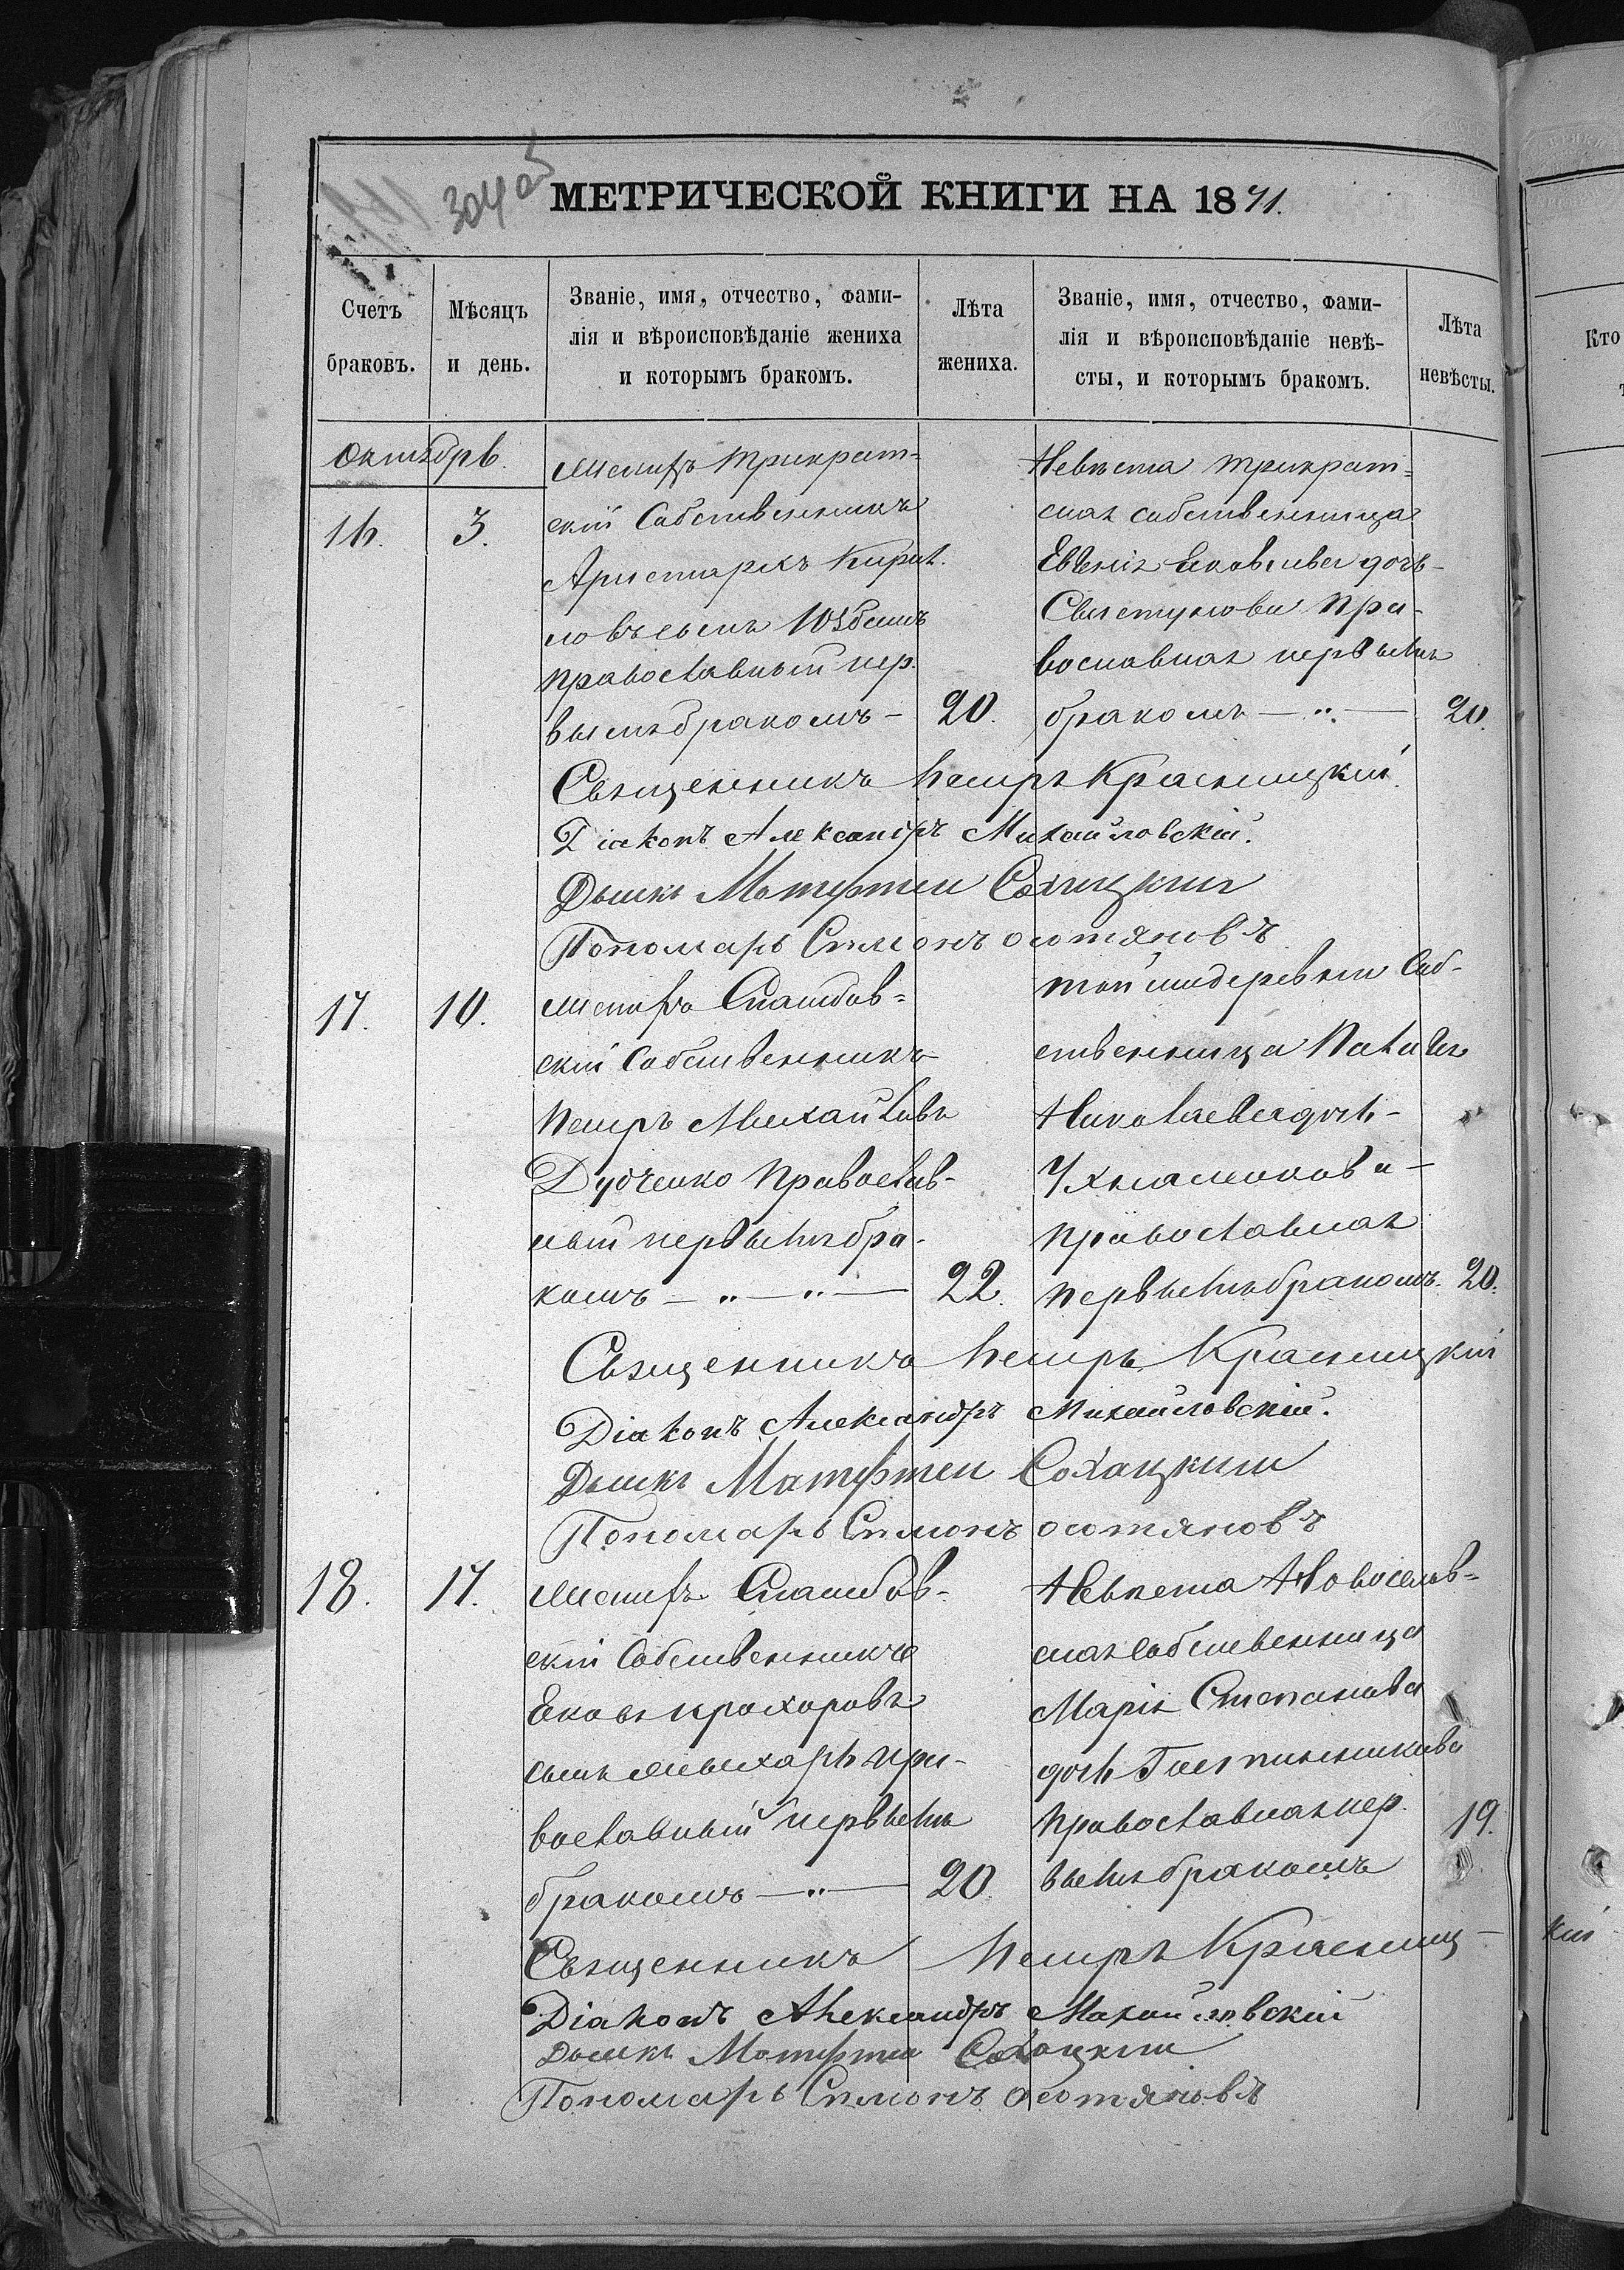 304 об
МЕТРИЧЕСКОЙ КНИГИ НА 1871.
Счетъ браковъ.
Мѣсяцъ и день.
Званіе, имя, отчество, фами-
лія и вѣроисповѣданіе жениха
и которымъ бракомъ.
Лѣта жениха.
Званіе, имя, отчество, фами-
лія и вѣроисповѣданіе невѣ-
сты, и которымъ бракомъ.
Лѣта невѣсты.
Кто
Октябрь.
16.
3.
Женихъ Трикрат-
скій Собственникъ
Аристархъ Кирил.
ловъ сынъ
православный пер.
вымъ бракомъ -
20.
Невѣста Трикрат-
ская собственница
Евгенія Яковлева дочь -
Свистунова Пра-
вославная первымъ
бракомъ
20.
Священникъ Петръ Красницкій.
Діаконъ Александръ Михайловскій.
Дьячкъ Матфтеи Сохацкии
Пономарь Симонъ
17.
10.
Женихъ
скій Собственникъ
Петръ Михайловъ
Дудченко Православ-
ный первымъ бра-
комъ
22.
той же деревни Соб-
ственница Наталія
Николаева дочь -
православная
первымъ бракомъ.
20.
Священникъ Петръ Красницкій
Діаконъ Александръ Михайловскій.
Дьячкъ Матфтеи Сохацкии
Пономарь Симонъ
18.
17.
Женихъ
скій Собственникъ
Яковъ Прохоровъ
сынъ Пра-
вославный первымъ
бракомъ
20.
Невѣста Новоселов-
ская Собственница
Марія Степанова
дочь Гостинникова
Православная пер.
вымъ бракомъ
19.
Священникъ Петръ Красниц-
кій
Діаконъ Александръ Михайловскій
Дьячкъ Матфтеи Сохацкии
Пономарь Симонъ